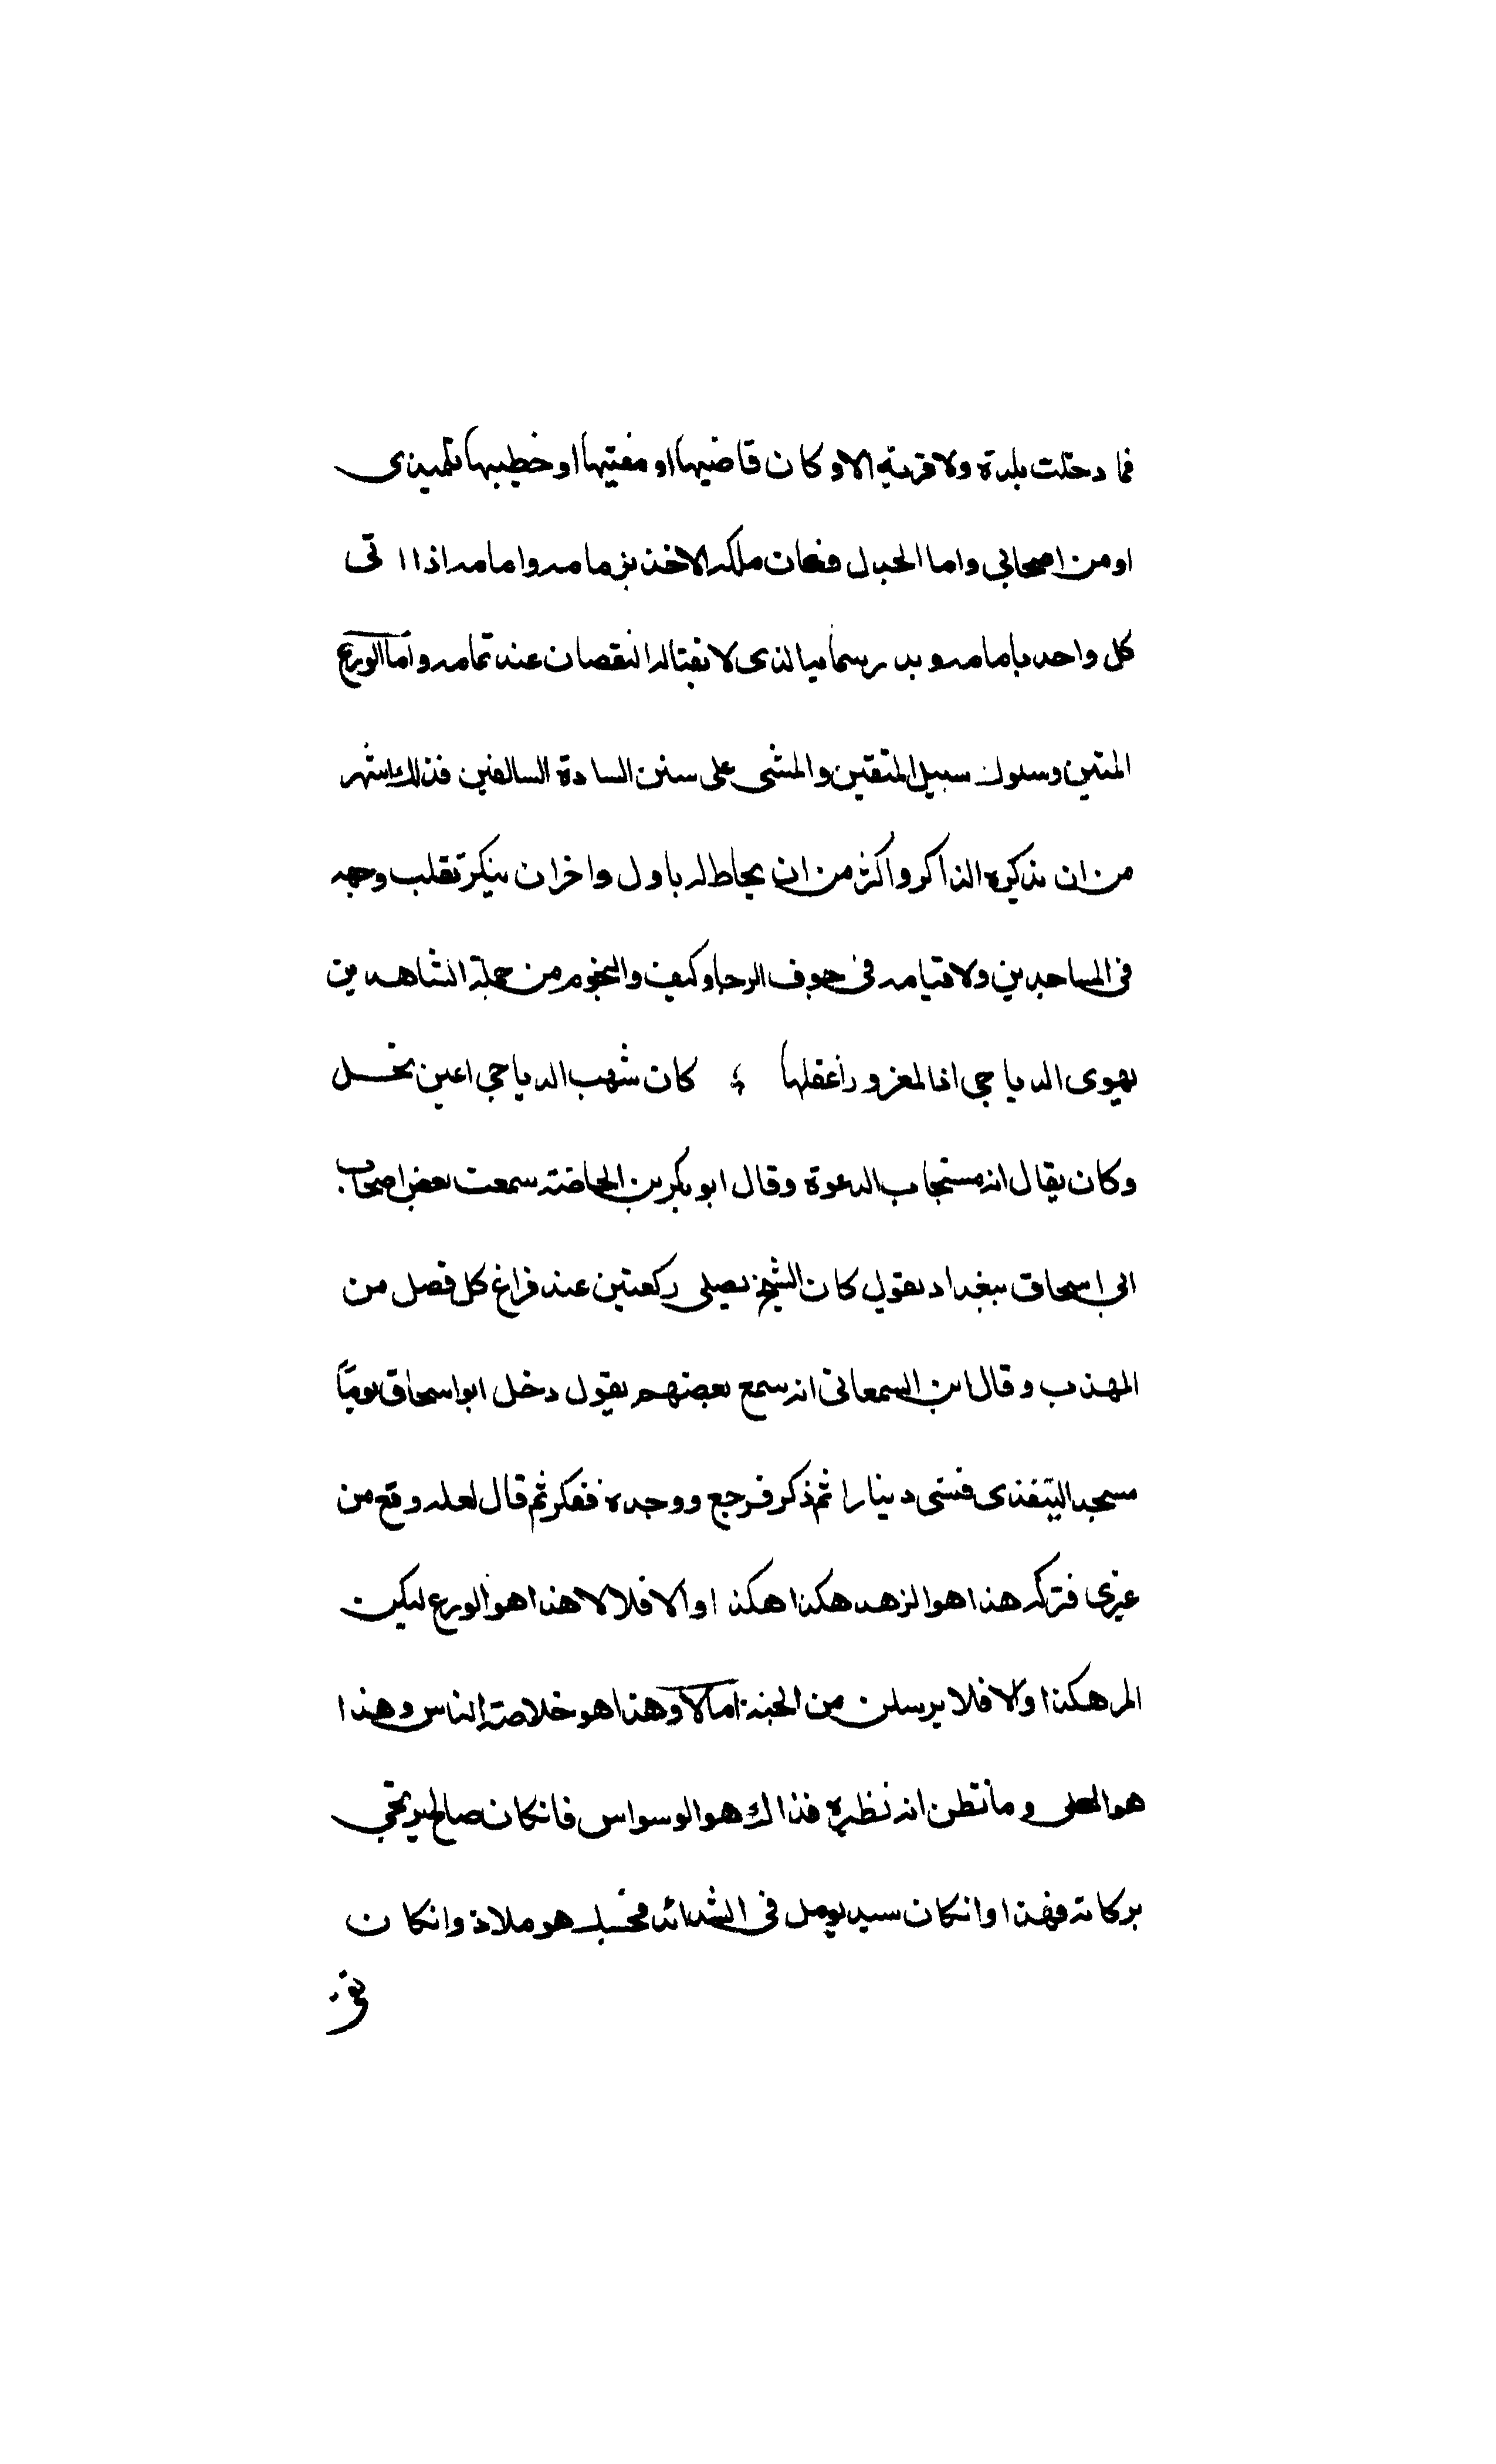 فما دخلت بلدة ولا قرية الا وكان قاضيها او مفتيها او خطيبها تلميذى
او من اصحابي واما الجدل فكان ملكه الاخذ بزمامه وامامه اذا اتى
كل واحد بامامه وبدر سمائيا لذى لا يغتاله النقصان عند تمامه واما الورع
المتين وسلوك سبيل المتقين والمشى على سنن السادة السالفين فذلك اشهر
من ان يذكره الذاكر واكثر من ان يحاط له باول واخران ينكر تقلب وجهه
فى الساجدين ولا قيامه فى جوف الدجا وكيف والنجوم من جملة الشاهدين
يهوى الدياجي اذا المغرور اغفلها ؛ كان شهب الدياجي اعين نحل
وكان يقال انه مستجاب الدعوة وقال ابو بكر بن الخاضته سمعت بعض اصحاب
ابى اسحاق ببغداد يقول كان الشيخ يصلى ركعتين عند فراغ كل فصل من
المهذب وقال ابن السمعانى انه سمع بعضهم يقول دخل ابو اسحاق يومًا
مسجد اليتغذى فنسى دينارا ثم ذكر فرجع ووجده ففكر ثم قال لعله وقع من
غيرى فتركه هذا هو الزهد هكذا هكذا او الا فلا لا هذا هو الورع ليكن
المر هكذا والا فلا يرسلن من الجنة امالا وهذا هو خلاصة الناس وهذا
هو المحلى وما تظن انه نظيره فذاك هو الوسواس فانكان صالح يرتجى
بركاته فهذا وانكان سيد يومل فى الشدائد فحسبك هو ملاذ وانكان